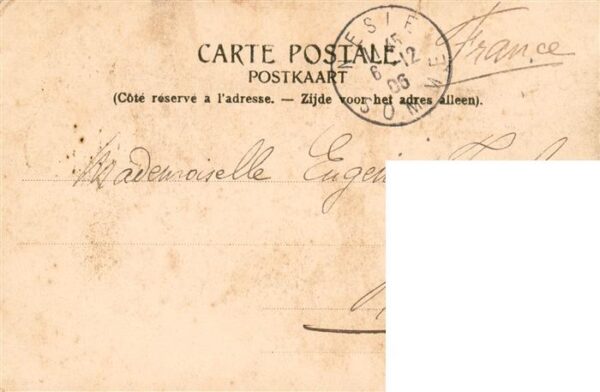 CARTE POSTALE
POSTKAART
(Côté réservé a l'adresse. — Zijde voor het adres alleen).
NESLE
15
6-12
06
SOMME
France
Mademoiselle